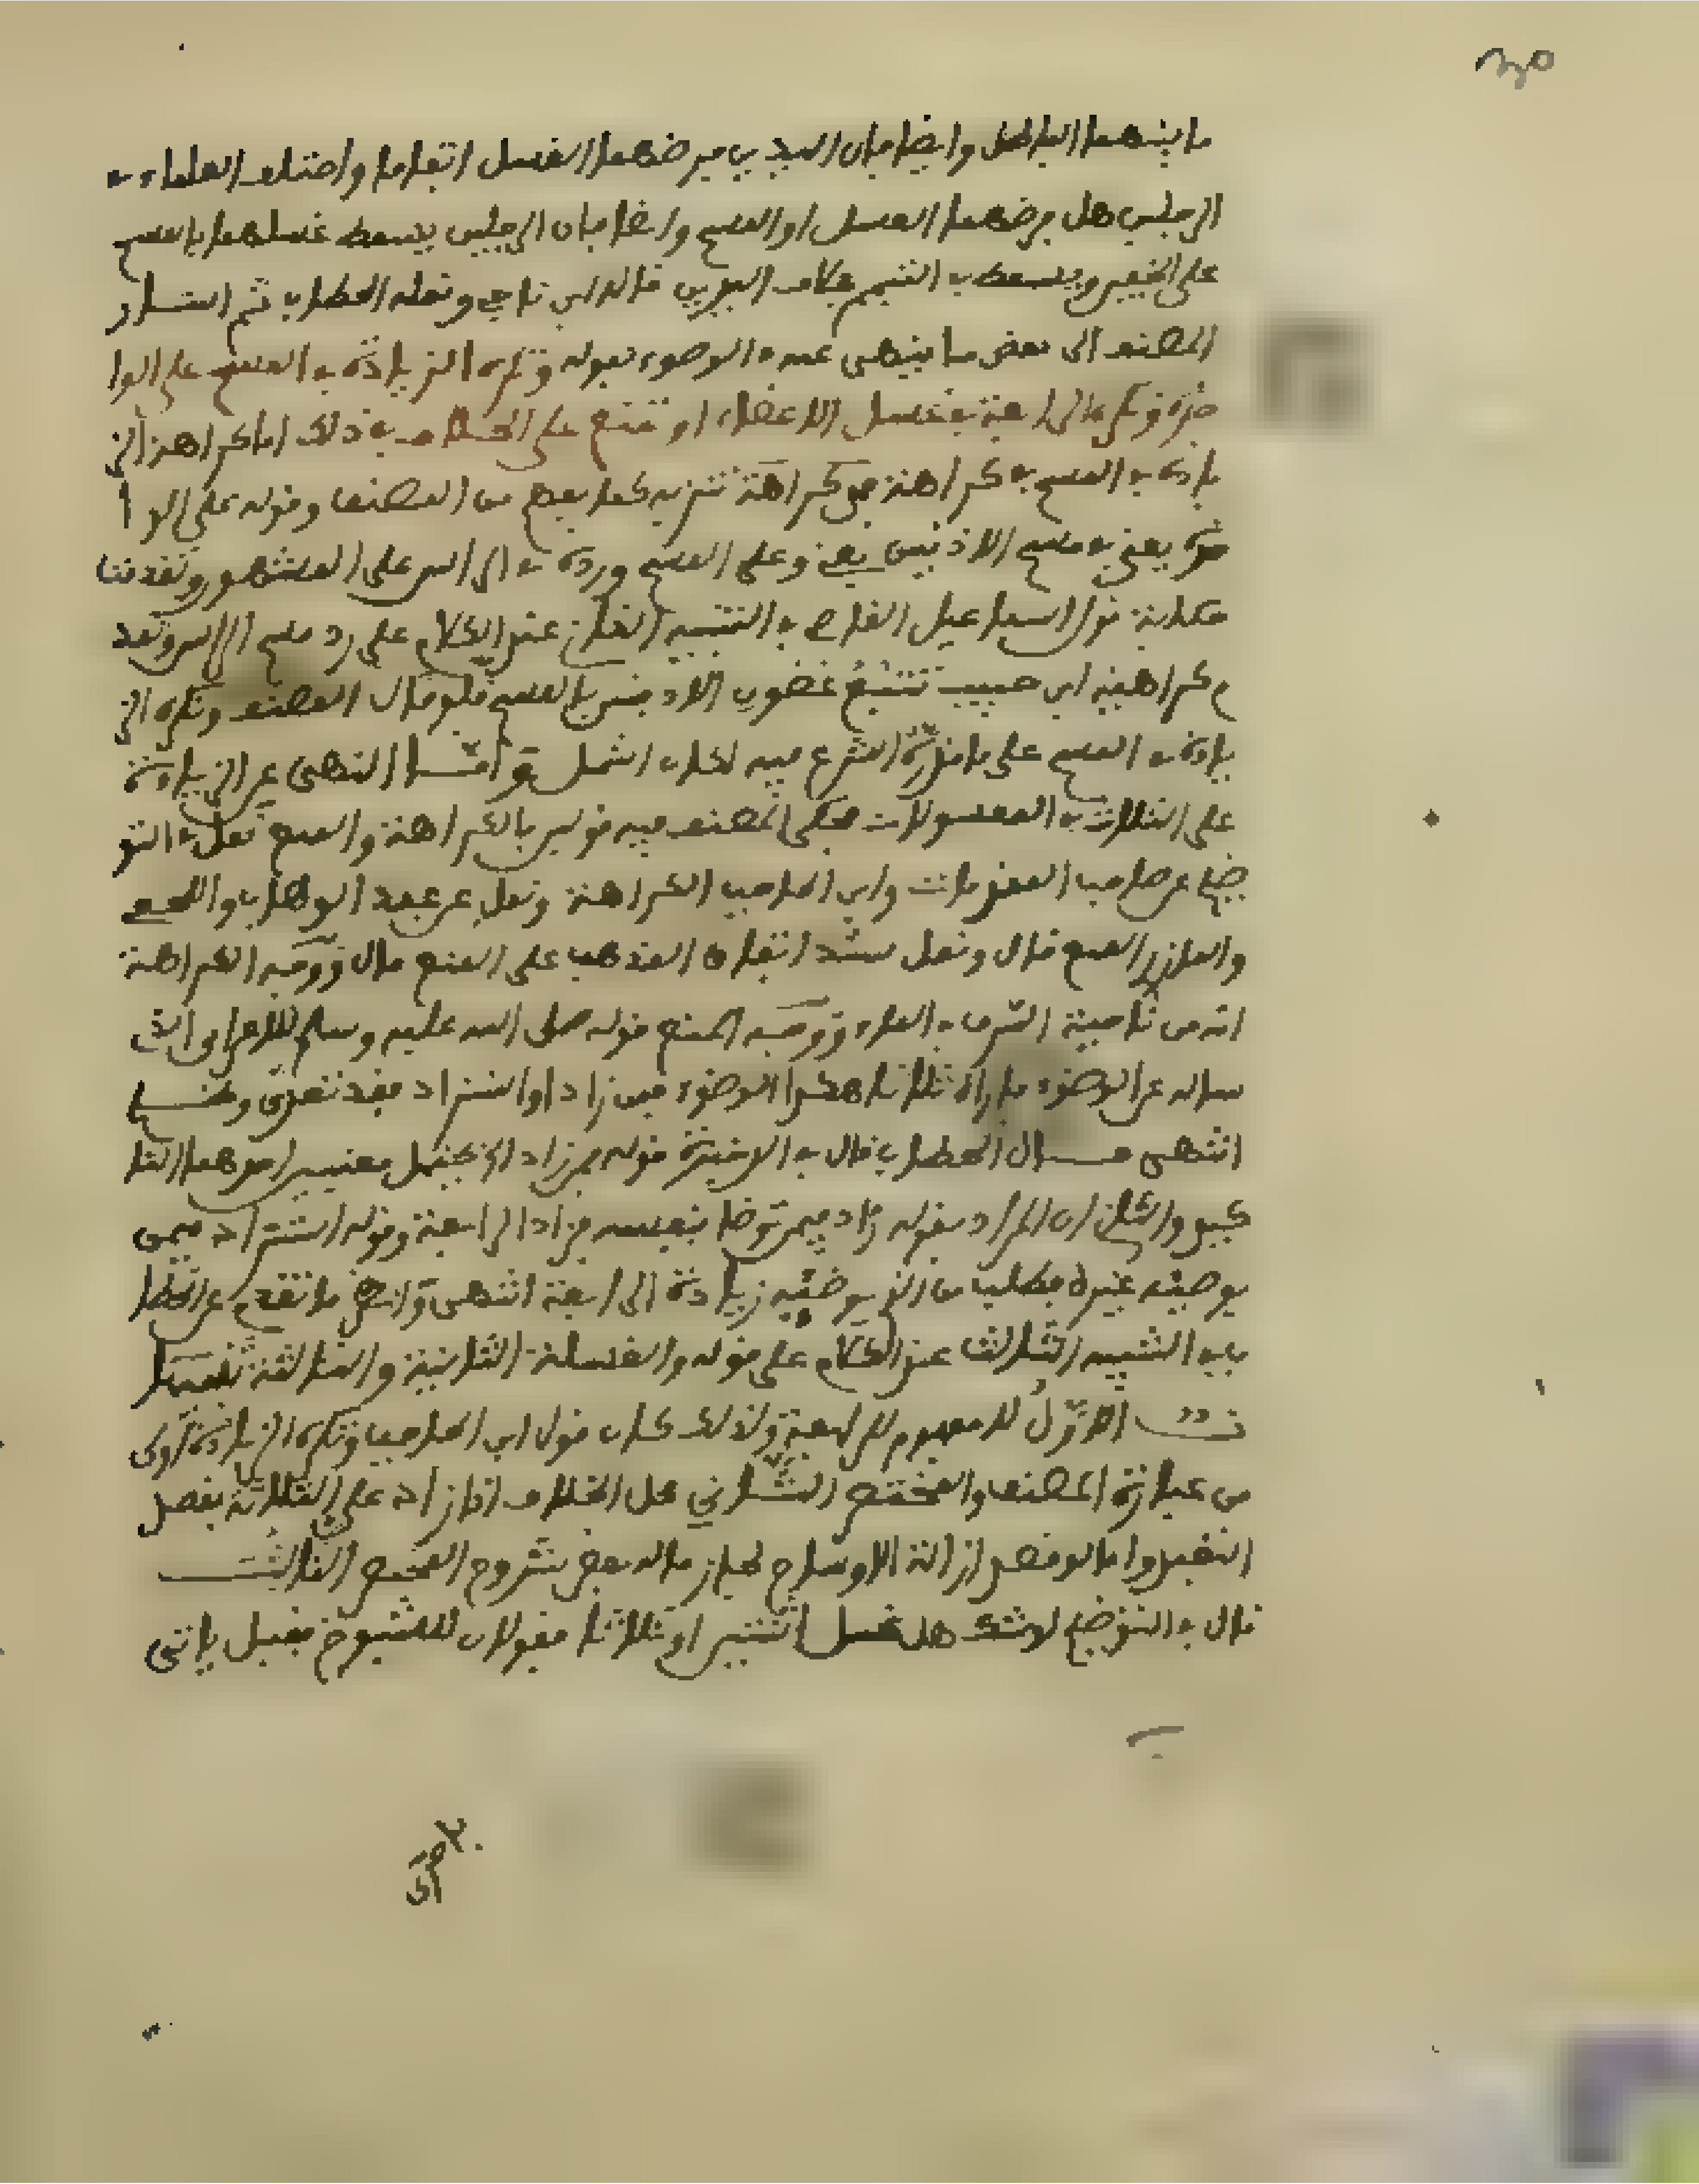 ما بينهما الباطل وايضا فان اليدين فرضهما الغسل اتفاقا واختلف العلماء في
الرجلين هل فرضهما الغسل او المسح وايضا فان الرجلين يسقط غسلهما بالمسح
على الخفين ويسقط في التيمم بخلاف اليدين قاله ابن ناجي ونقله الحطاب ثم اشار
المصنف الى بعض ما ينهى عنه في الوضوء بقوله وتكره الزيادة في المسح على الوا
حدة وتكره الرابعة في غسل الاعضاء او تمنع على الخلاف في ذلك اما كراهة الز
يادة في المسح في كراهة فهي كراهة تنزيه كما يفهم من المصنف وقوله على الوا
حدة يعني في مسح الاذنين يعني وعلى المسح ورده في الراس على المشهور وتقدمت
حكاية قول اسماعيل القاضي في التنبيه الثاني عند الكلام على رد مسح الراس وتقد
م كراهية ابن حبيب تتبع غضون الاذنين بالمسح فلو قال المصنف وتكره الز
يادة في المسح على ما قرره الشرع فيه لكان اشمل واما النهي عن الزيادة
على الثلاث في المغسولات فحكى المصنف فيه قولين بالكراهة والمنع نقل في التو
ضيح عن صاحب المقدمات وابن الحاجب الكراهة ونقل عن عبد الوهاب واللخمي
والمازري المنع قال ونقل سند اتفاق المذهب على المنع قال ووجه الكراهة
انه من ناحية السرف في الماء ووجه المنع قوله صلى الله عليه وسلم للاعرابي الذي
ساله عن الوضوء فاراه ثلاثا هكذا الوضوء فمن زاد او استزاد فقد تعدى وظلم
انتهى قال الحطاب قال في الذخيرة قوله فمن زاد الخ يحتمل معنيين احدهما التا
كيد والثاني ان المراد بقوله زاد فيمن توضا بنفسه فزاد الرابعة وقوله استزاد فيمن
يوضئه غيره فطلب من الذي يوضئه زيادة الرابعة انتهى وانظر ما تقدم عن الحطا
ب في التنبيه الثالث عند الكلام على قوله والغسلة الثانية والثالثة تنبيها
ت الاول لا مفهوم للرابعة ولذلك كان قول ابن الحاجب وتكره الزيادة اولى
من عبارة المصنف والمختصر الثاني محل الخلاف اذا زاد على الثلاثة بقصد
التعبد واما لو قصد ازالة الاوساخ لجاز قاله بعض شروح المختصر الثالث
قال في التوضيح لو شك هل غسل اثنتين او ثلاثا فقولان للشيوخ فقيل ياتي